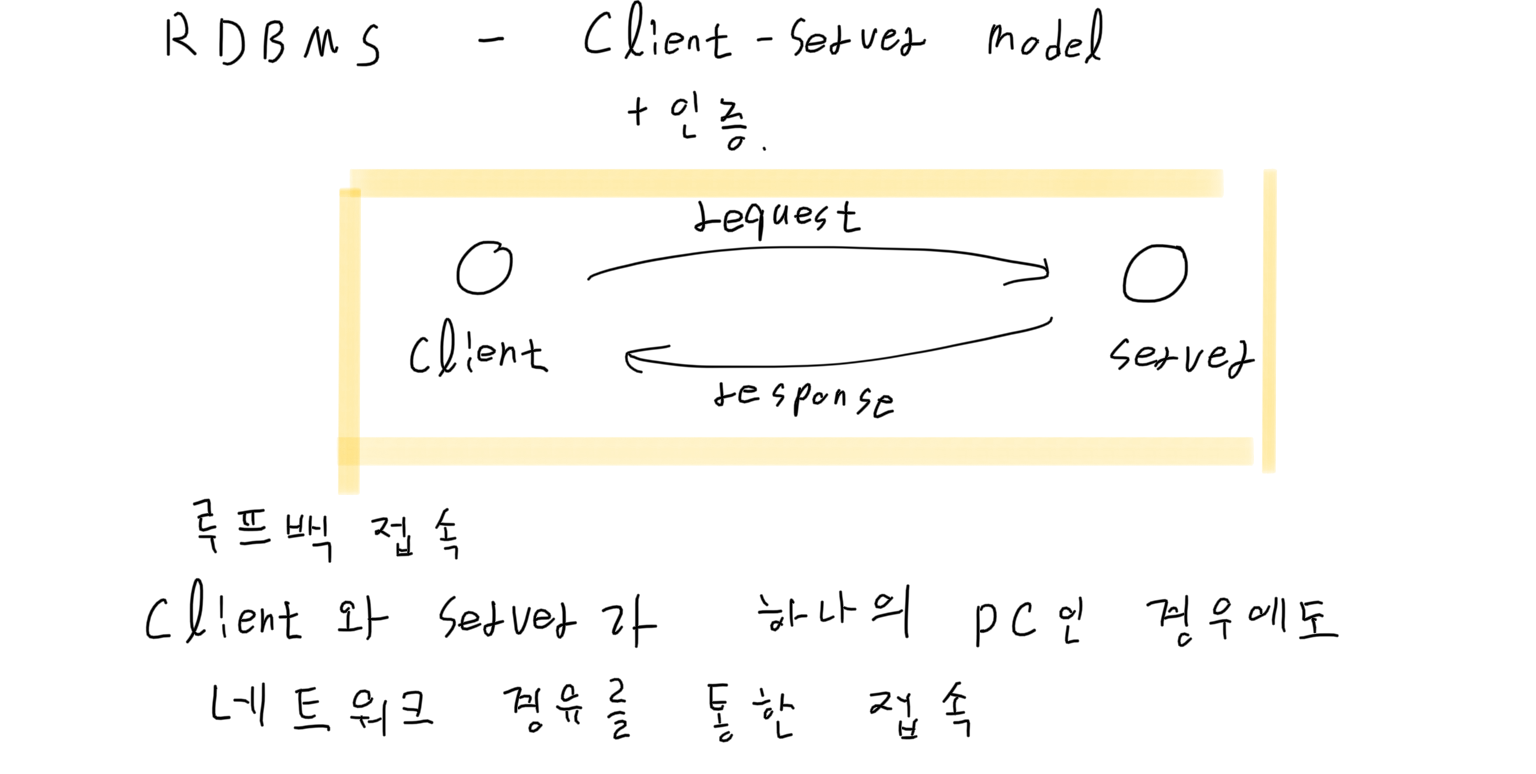 RDBMS - Client-Server Model
+ 인증.
request
Client
Server
response
루프백 접속
Client와 Server가 하나의 PC인 경우에도
네트워크 경유를 통한 접속